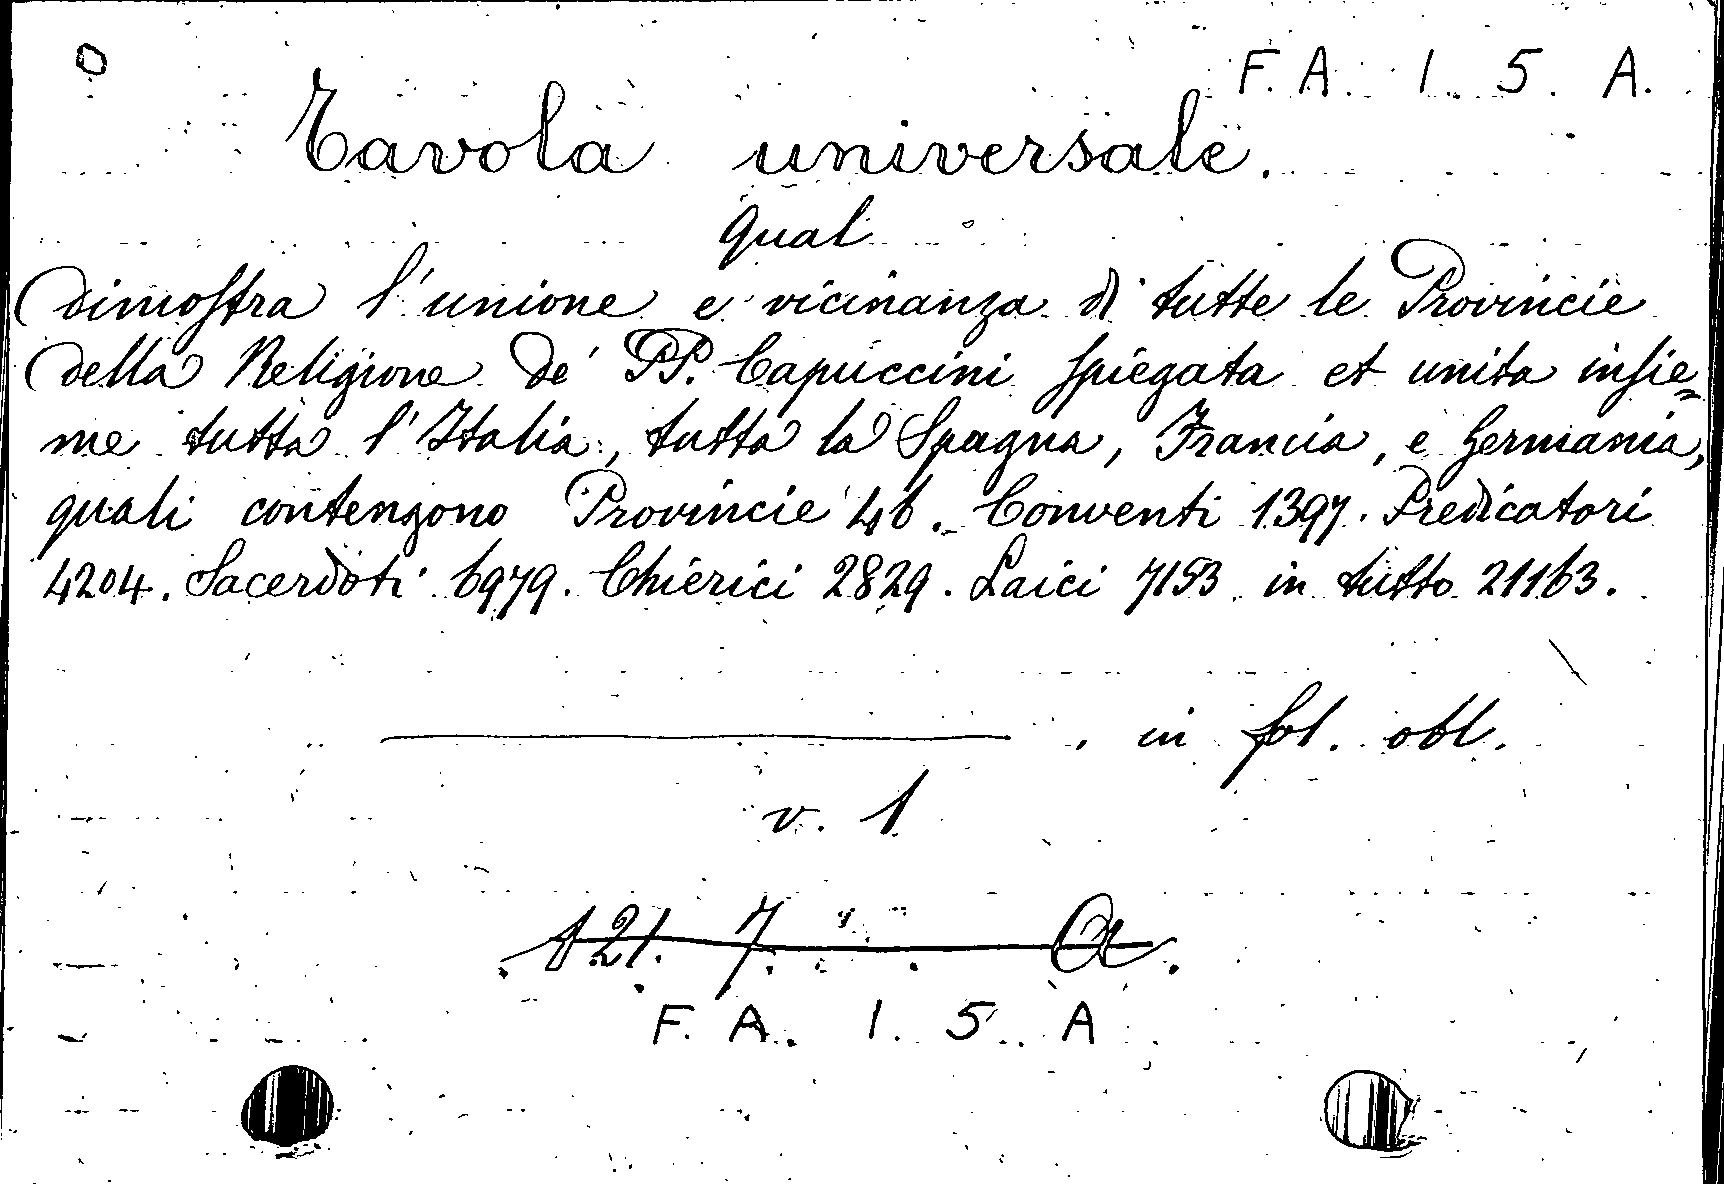 F. A. 1. 5. A.
Tavola universale.
Qual
dimoſtra l'unione e vicinanza di tutte le Provincie
della Religione de' PP. Capuccini ſpiegata et unita inſie=
me tutta l'Italia, tutta la Spagna, Francia, e Germania,
quali contengono Provincie 46. Conventi 1397. Predicatori
4204. Sacerdoti 6979. Chierici 2829. Laici 7153 in tutto 21163.
. in fol. obl.
v. 1
121. 7. A.
F. A. 1. 5. A